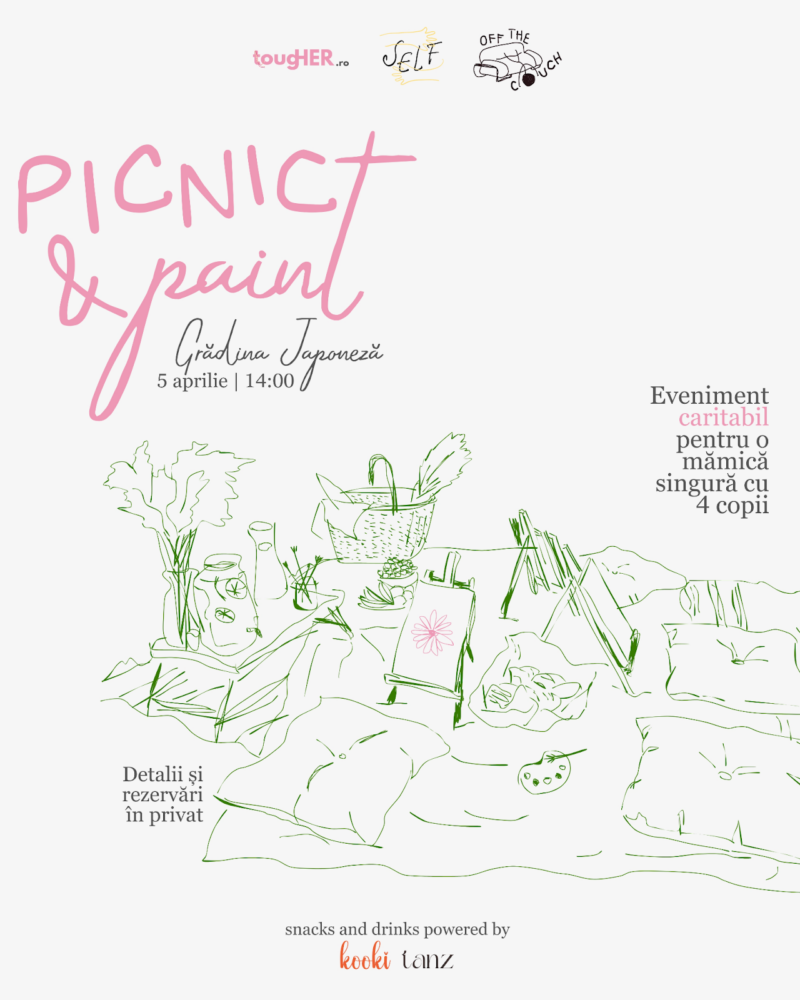 tougHER.ro
SELF
OFF THE
COUCH
PICNIC
& paint
Grădina Japoneză
5 aprilie | 14:00
Eveniment
caritabil
pentru o
mămică
singură cu
4 copii
Detalii și
rezervări
în privat
snacks and drinks powered by
kooki tanz